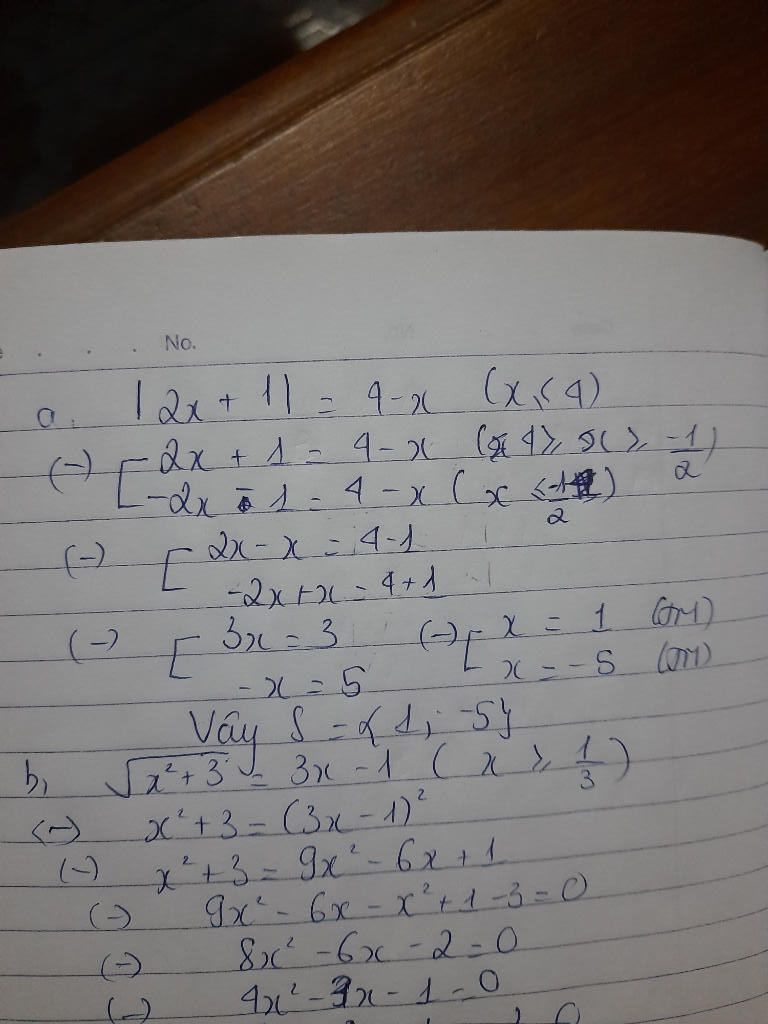 No.
a. |2x + 1| = 4 - x (x ≤ 4)
(-) [ 2x + 1 = 4 - x (4 ≥ x ≥ -1/2)
-2x - 1 = 4 - x (x ≤ -1/2)
(-) [ 2x - x = 4 - 1
-2x + x = 4 + 1
(-) [ 3x = 3 (-) [ x = 1 (TM)
-x = 5 x = -5 (TM)
Vây S = { 1; -5}
b, √(x² + 3) = 3x - 1 ( x ≥ 1/3 )
<-> x² + 3 = (3x - 1)²
(-) x² + 3 = 9x² - 6x + 1
(-) 9x² - 6x - x² + 1 - 3 = 0
(-) 8x² - 6x - 2 = 0
(-) 4x² - 3x - 1 = 0